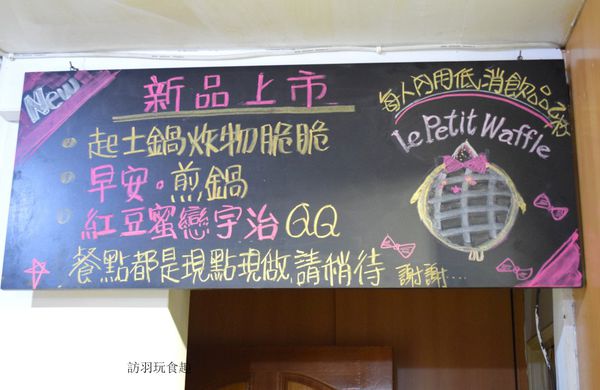 New
新品上市
每人內用低消飲品乙杯
Le Petit Waffle
起士鍋炸物脆脆
早安。煎鍋
紅豆蜜戀宇治QQ
餐點都是現點現做,請稍待 謝謝....
訪羽玩食趣